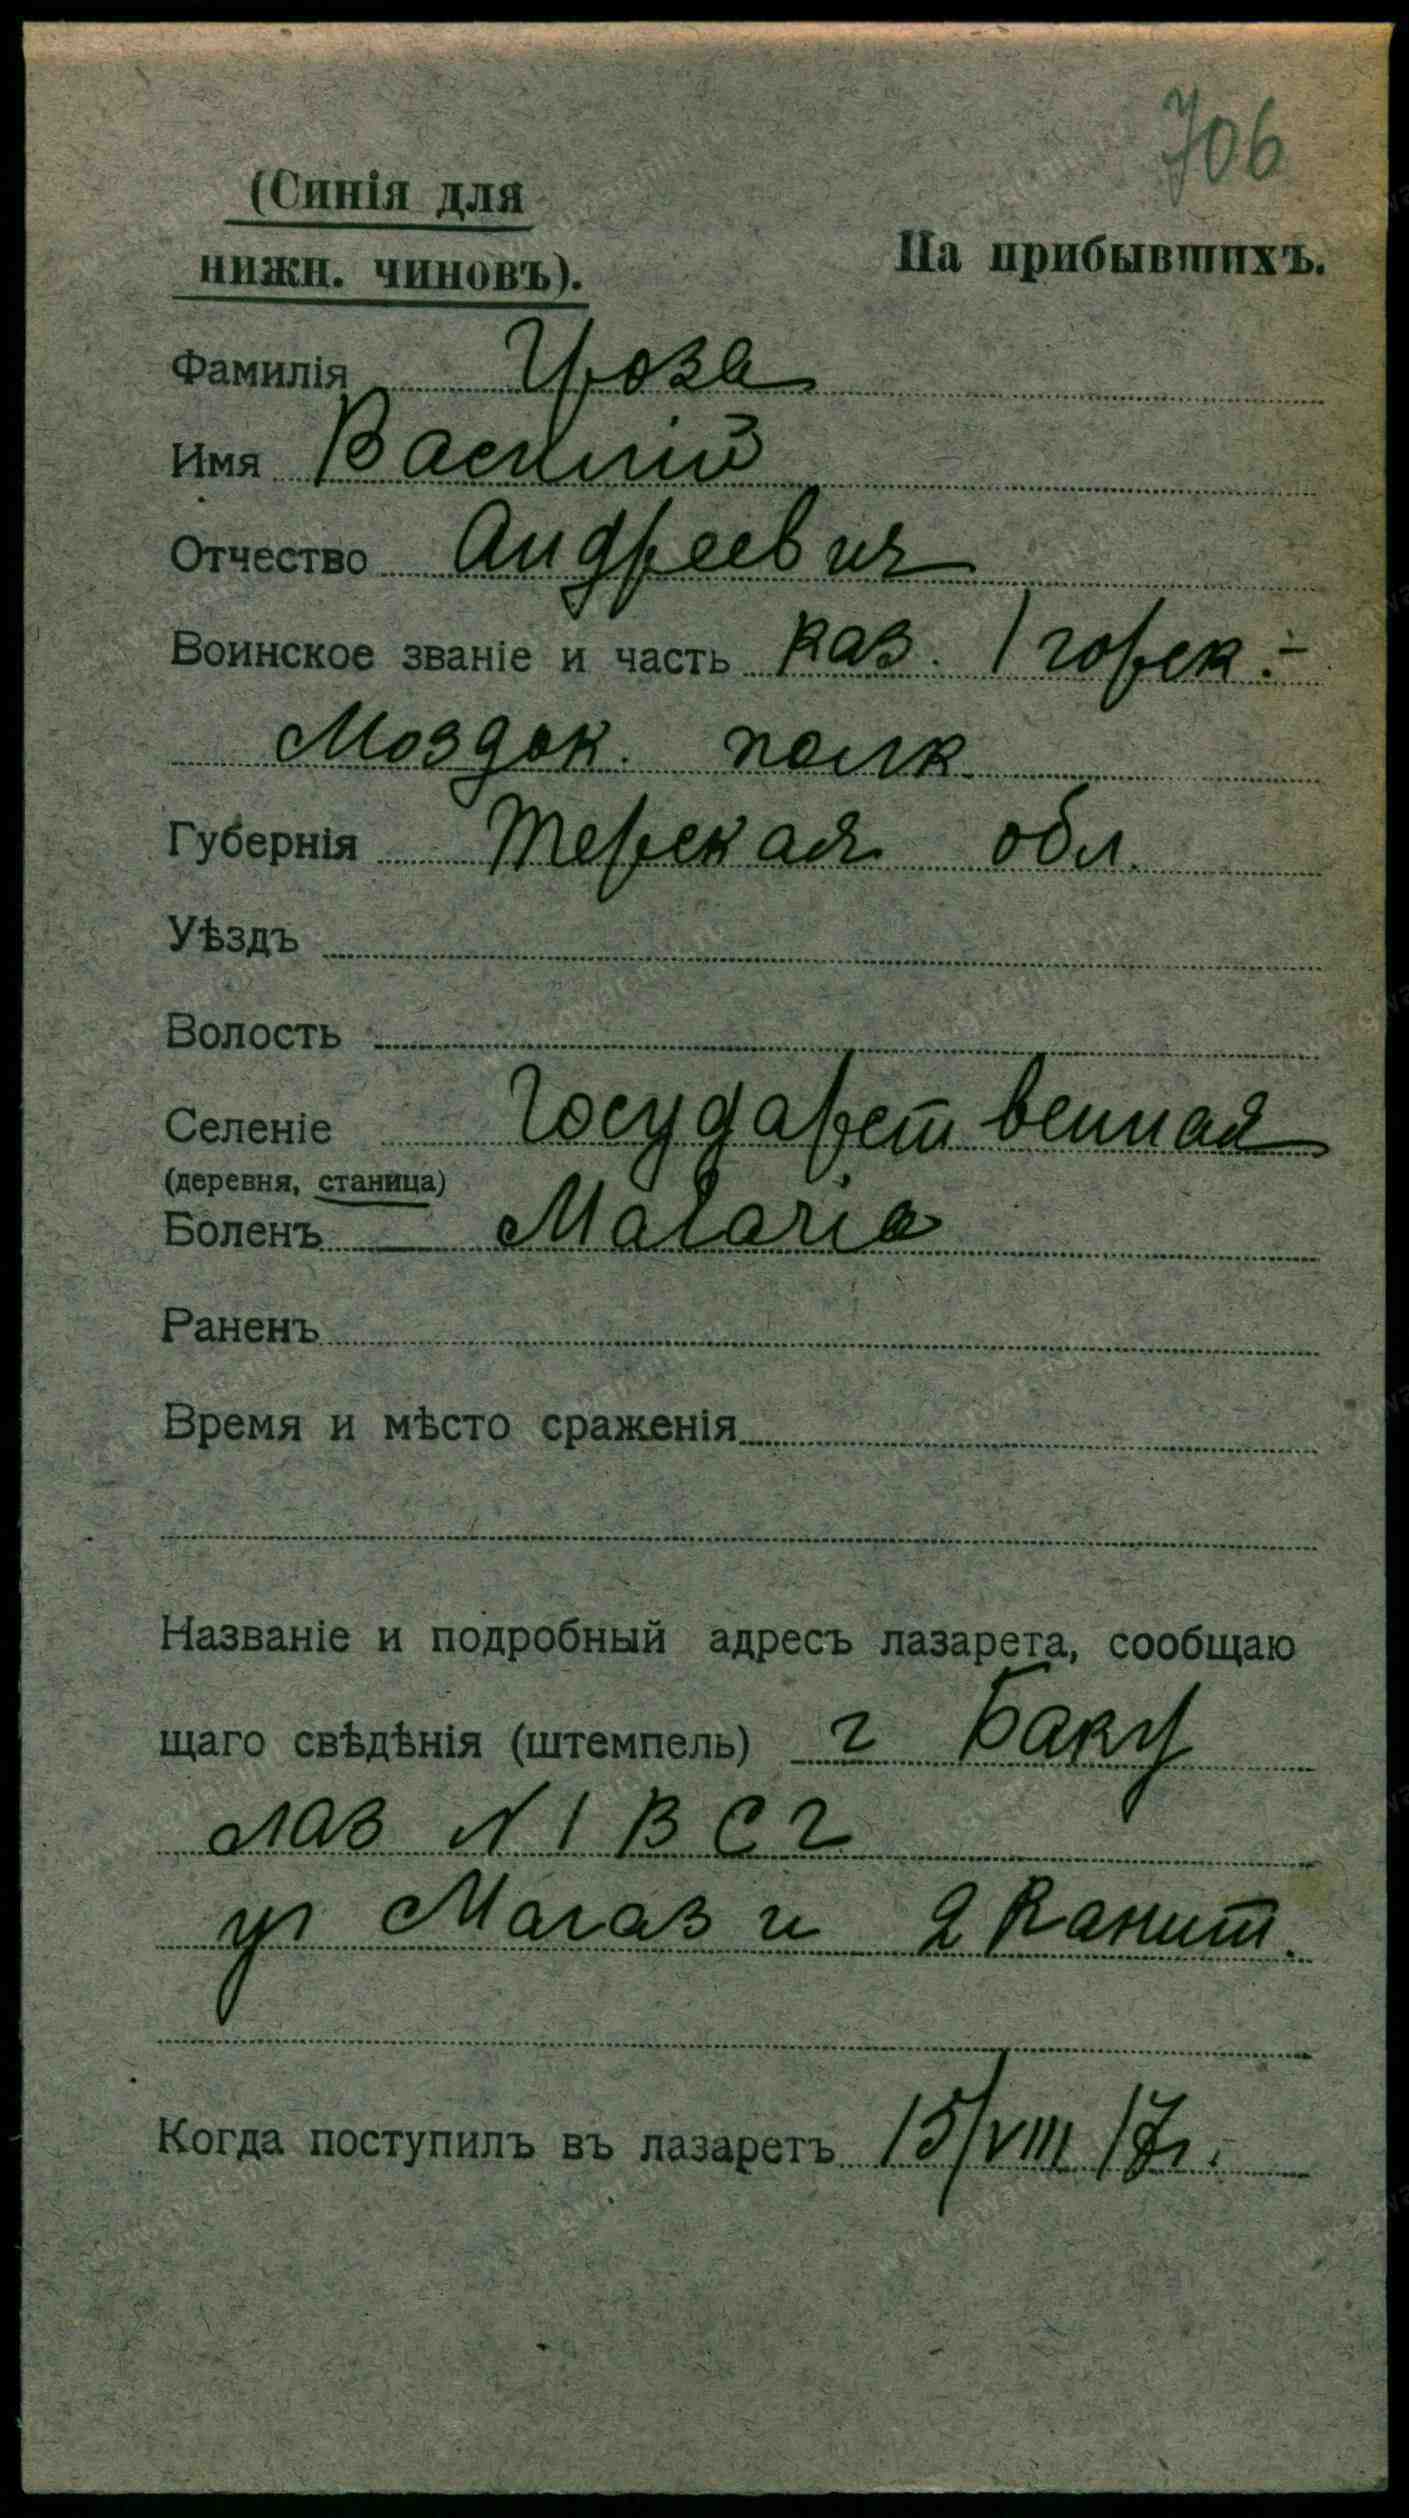 706
(Синія для
нижн. чиновъ).
На прибывшихъ.
Фамилія Цоза
Имя Василій
Отчество Андреевич
Воинское званіе и часть каз. 1 горск.-
Моздок. полк.
Губернія Терская обл.
Уѣздъ
Волость
Селеніе Государственная
(деревня, станица)
Боленъ Malaria
Раненъ
Время и мѣсто сраженія
Названіе и подробный адресъ лазарета, сообщаю
щаго свѣдѣнія (штемпель) г Баку
лаз N 1 В С Г
уг Магаз и 2 Канит.
Когда поступилъ въ лазаретъ 15/VIII 17г.